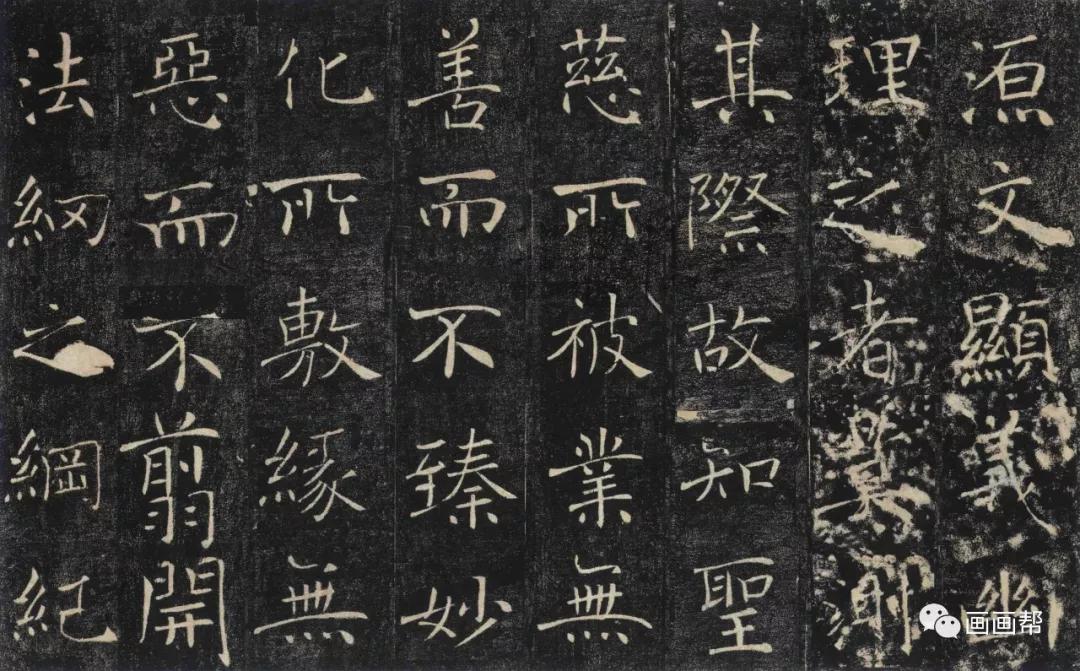 源文顯義幽
理之者莫測
其際故知聖
慈所被業無
善而不臻妙
化所敷緣無
惡而不翦開
法網之綱紀
画画帮